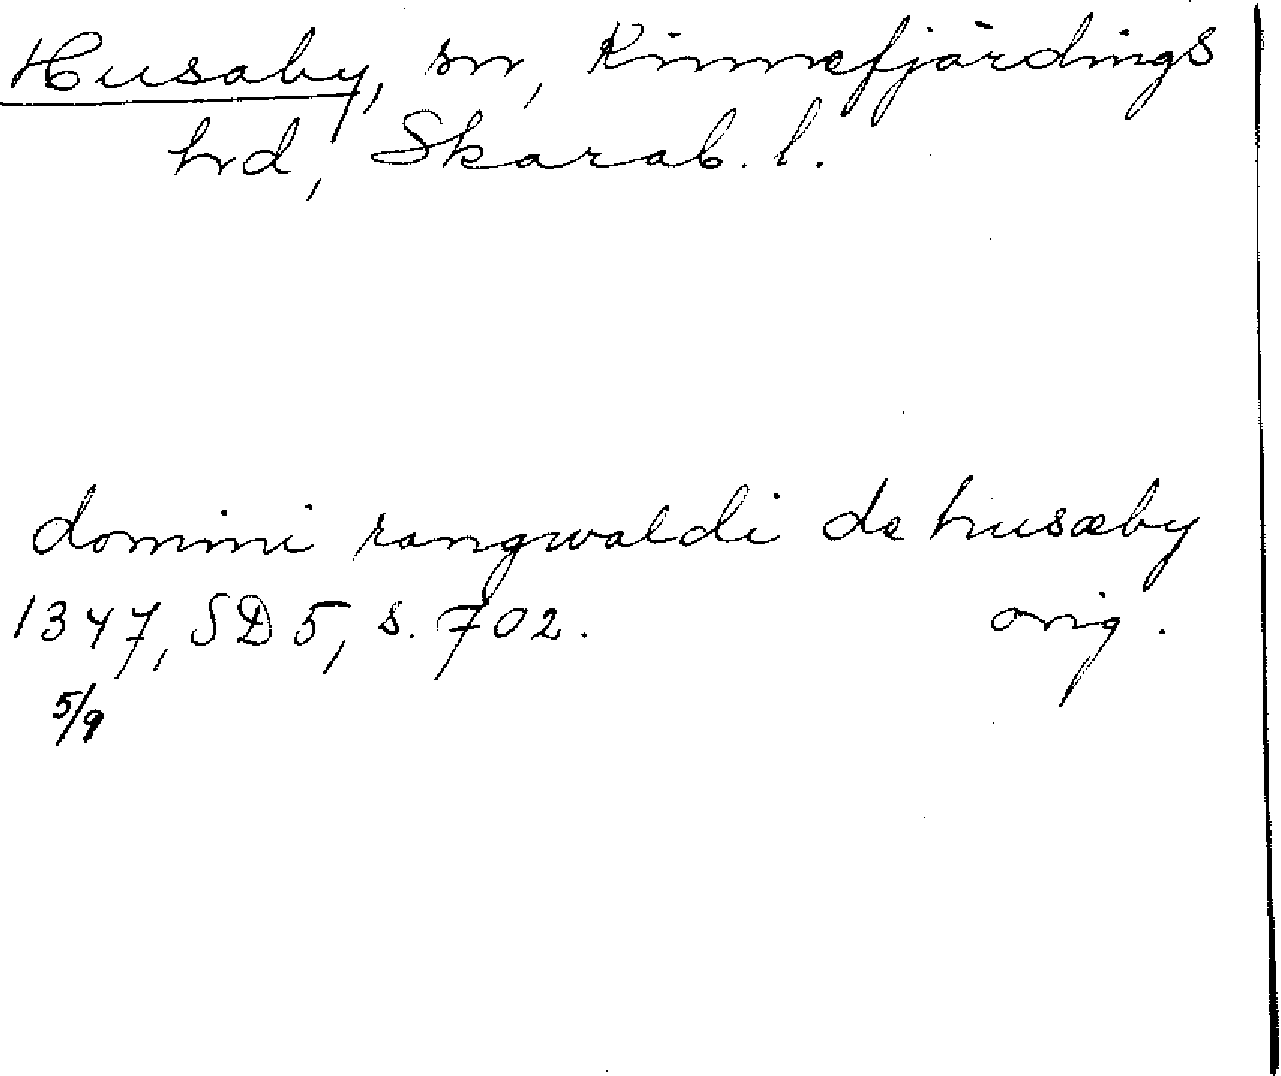 Husaby, sn, Kinnefjärdings
hrd, Skarab. l.
domini rangwaldi de husæby
1347, SD 5, s. 702. orig.
5/9